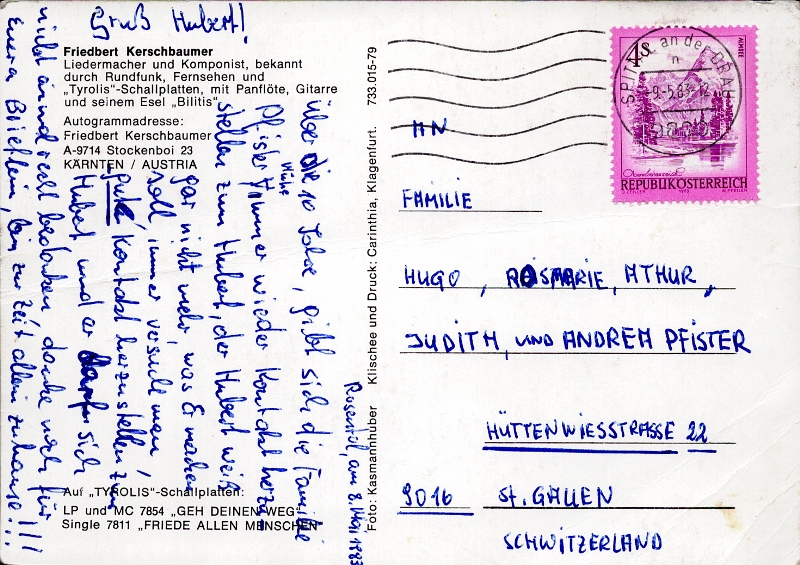 Gruß Hubert!
Friedbert Kerschbaumer
Liedermacher und Komponist, bekannt
durch Rundfunk, Fernsehen und
„Tyrolis"-Schallplatten, mit Panflöte, Gitarre
und seinem Esel "Bilitis".
Autogrammadresse:
Friedbert Kerschbaumer
A-9714 Stockenboi 23
KÄRNTEN / AUSTRIA
Auf „TYROLIS"-Schallplatten:
LP und MC 7854 „GEH DEINEN WEG"
Single 7811 „FRIEDE ALLEN MENSCHEN"
Rosental, am 8. Mai 1983
Über die 10 Jahre, gibt sich die Familie
Pfister immer wieder Mühe Kontakt herzu
stellen zum Hubert, der Hubert weiß
gar nicht mehr, was Er machen
soll, immer versucht man,
gute Kontakt herzustellen zum
Hubert und er darf sich
nicht einmal bedanken danke noch für
Euera Brieflein, bin zur Zeit allein zuhause...!!!
Foto: Kasmannhuber Klischee und Druck: Carinthia, Klagenfurt. 733.015-79
SPITTAL an der DRAU
-9.-5.83-12
9800
4 S
ALMSEE
Oberösterreich
REPUBLIK ÖSTERREICH
AN
FAMILIE
HUGO, ROSMARIE, ATHUR,
JUDITH, UND ANDREA PFISTER
HÜTTENWIESSTRASSE 22
9016 St. GALLEN
SCHWITZERLAND